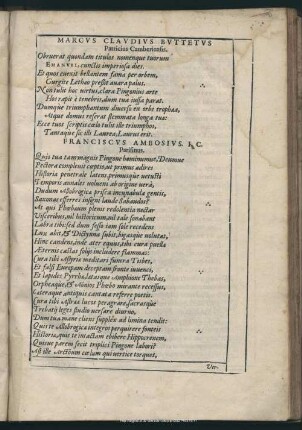 MARCVS CLAVDIVS BVTTETVS
Patricius Camberiensis.
Obruerat quondam titulos nomenque tuorum
EMANVEL, cunctis imperiosa dies.
Et quos euexit bellantem fama per orbem,
Gurgite Lethæo presserat auara palus.
Non tulit hoc virtus, clara Pingonius arte
Hos rapit è tenebris, dum tua iussa parat.
Dumque triumphantum diuersa ex orbe trophæa,
Atque domus referat stemmata longa tuæ:
Ecce tuos sceptris cælo tulit ille triumphos,
Tantaque sic illi Laurea, Laurus erit.
FRANCISCVS AMBOSIVS. I. C.
Parisinus.
Quis tua tam magnis Pingone
Pectora compleuit cœptis, vt primus adires
Historiæ penetrale latens, primusque vetusti
Temporis annales voluens ab origine
Dudum Allobrogica prisca incunabula gentis,
Saxonas efferres insigni laude Sabaudos?
At qui Phœbæum plenis redolentia nectar
Visceribus, nil historicum, nil tale sonabant
Labra tibi: sed dum fesso iam scit recedens
Lux abit, &
Hinc candens, inde ater equus, tibi cura puellæ
Æternis cæstas folijs includere flammas:
Cura tibi Assyria meditari funera Tisbes,
Et falsi Europam deceptam fronte iuuenci,
Et lapides Pyrrha, lætasque Amphione Thebas,
Orpheaque & Minois Phœbo mirante recessus,
Cæteraque antiquis cantata referre poetis.
Cura tibi Astreæ lucos peragrare, sacrasque
Trebatij leges studio versare diurno,
Dum tua manè cliens supplex ad limina tendit:
Quis te Allobrogica integros perquirere fonteis
Historia, quis te intactam ebibere Hippocrenem,
Quisue parem fecit triplici Pingone labori?
Ast ille Arctoum cœlum qui vertice torquet,
Ver-